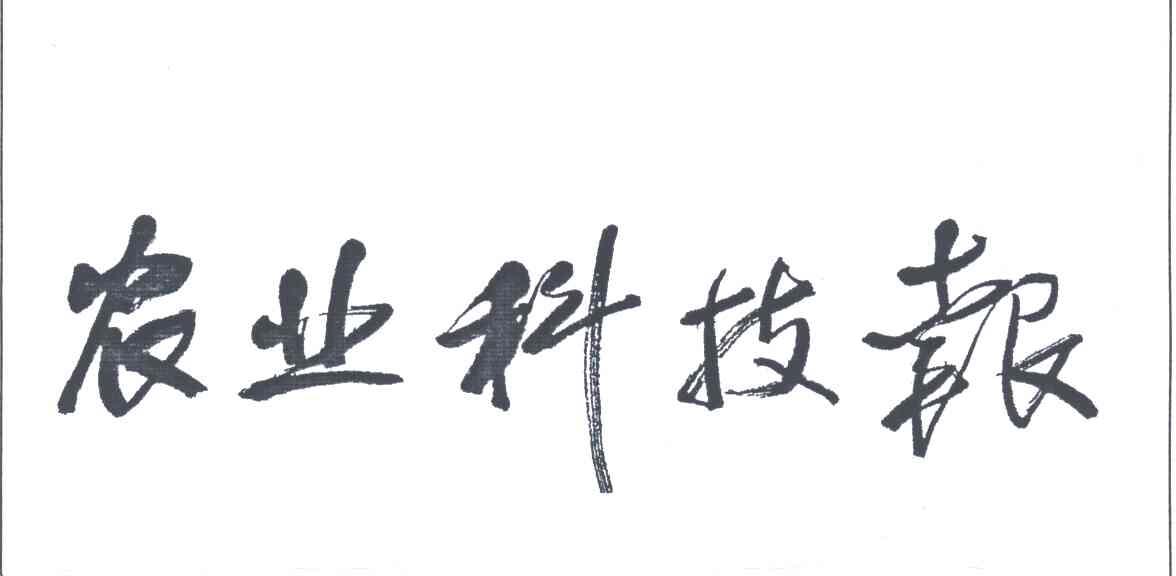 农业科技報